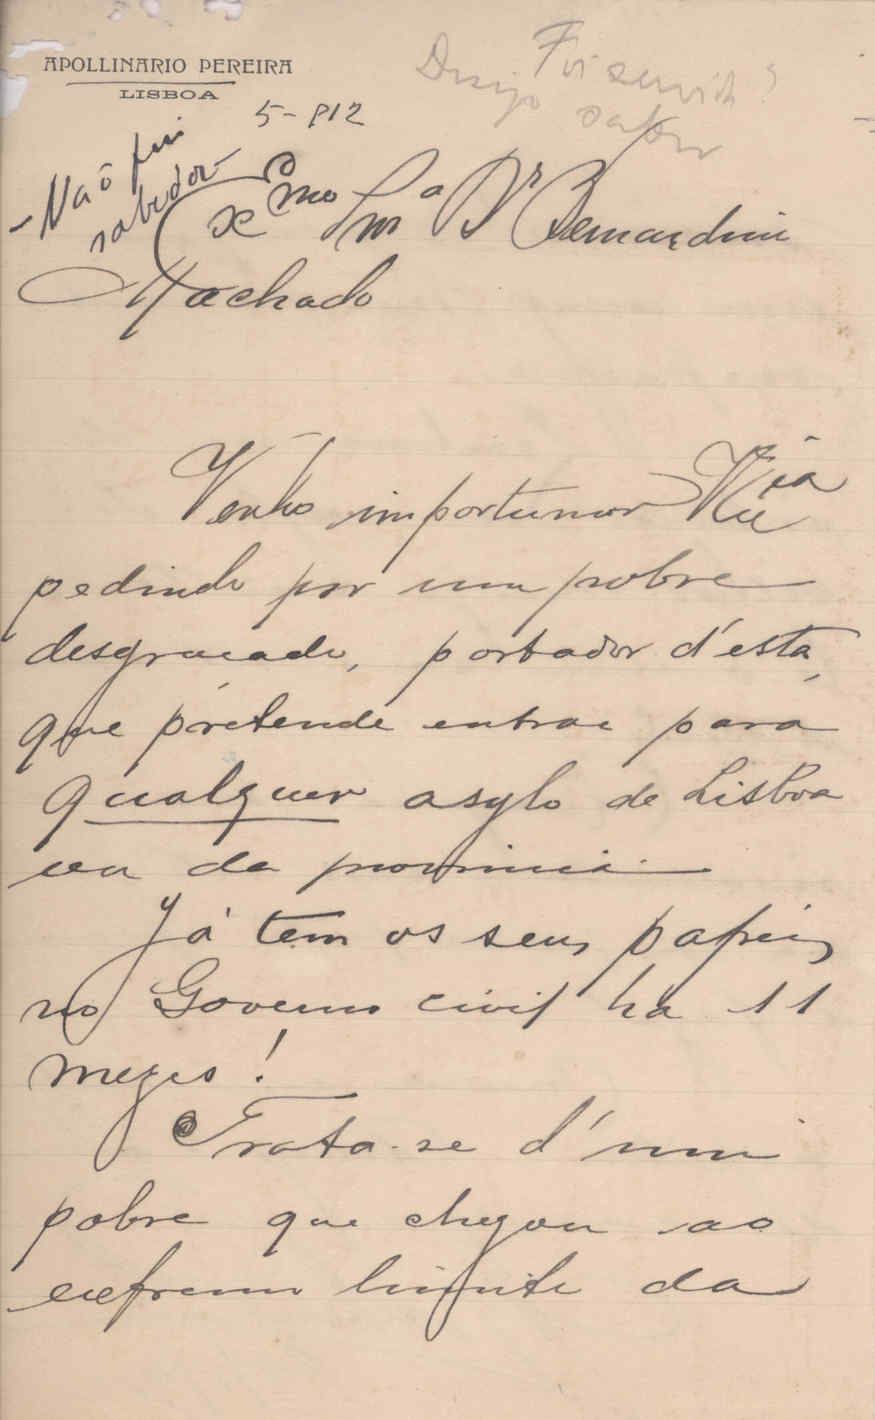 APOLLINARIO PEREIRA
LISBOA
5-912
Desejo
Foi servido?
saber
- Não fui
sabedor -
Exmo Snr Dr Bernardino
Machado
Venho importunar V Excia
pedindo por um pobre
desgraçado, portador d'esta,
que pretende entrar para
qualquer asylo de Lisboa
ou da provincia.
Já tem os seus papeis
no Governo civil ha 11
mezes!
Trata-se d'um
pobre que chegou ao
extremo limite da